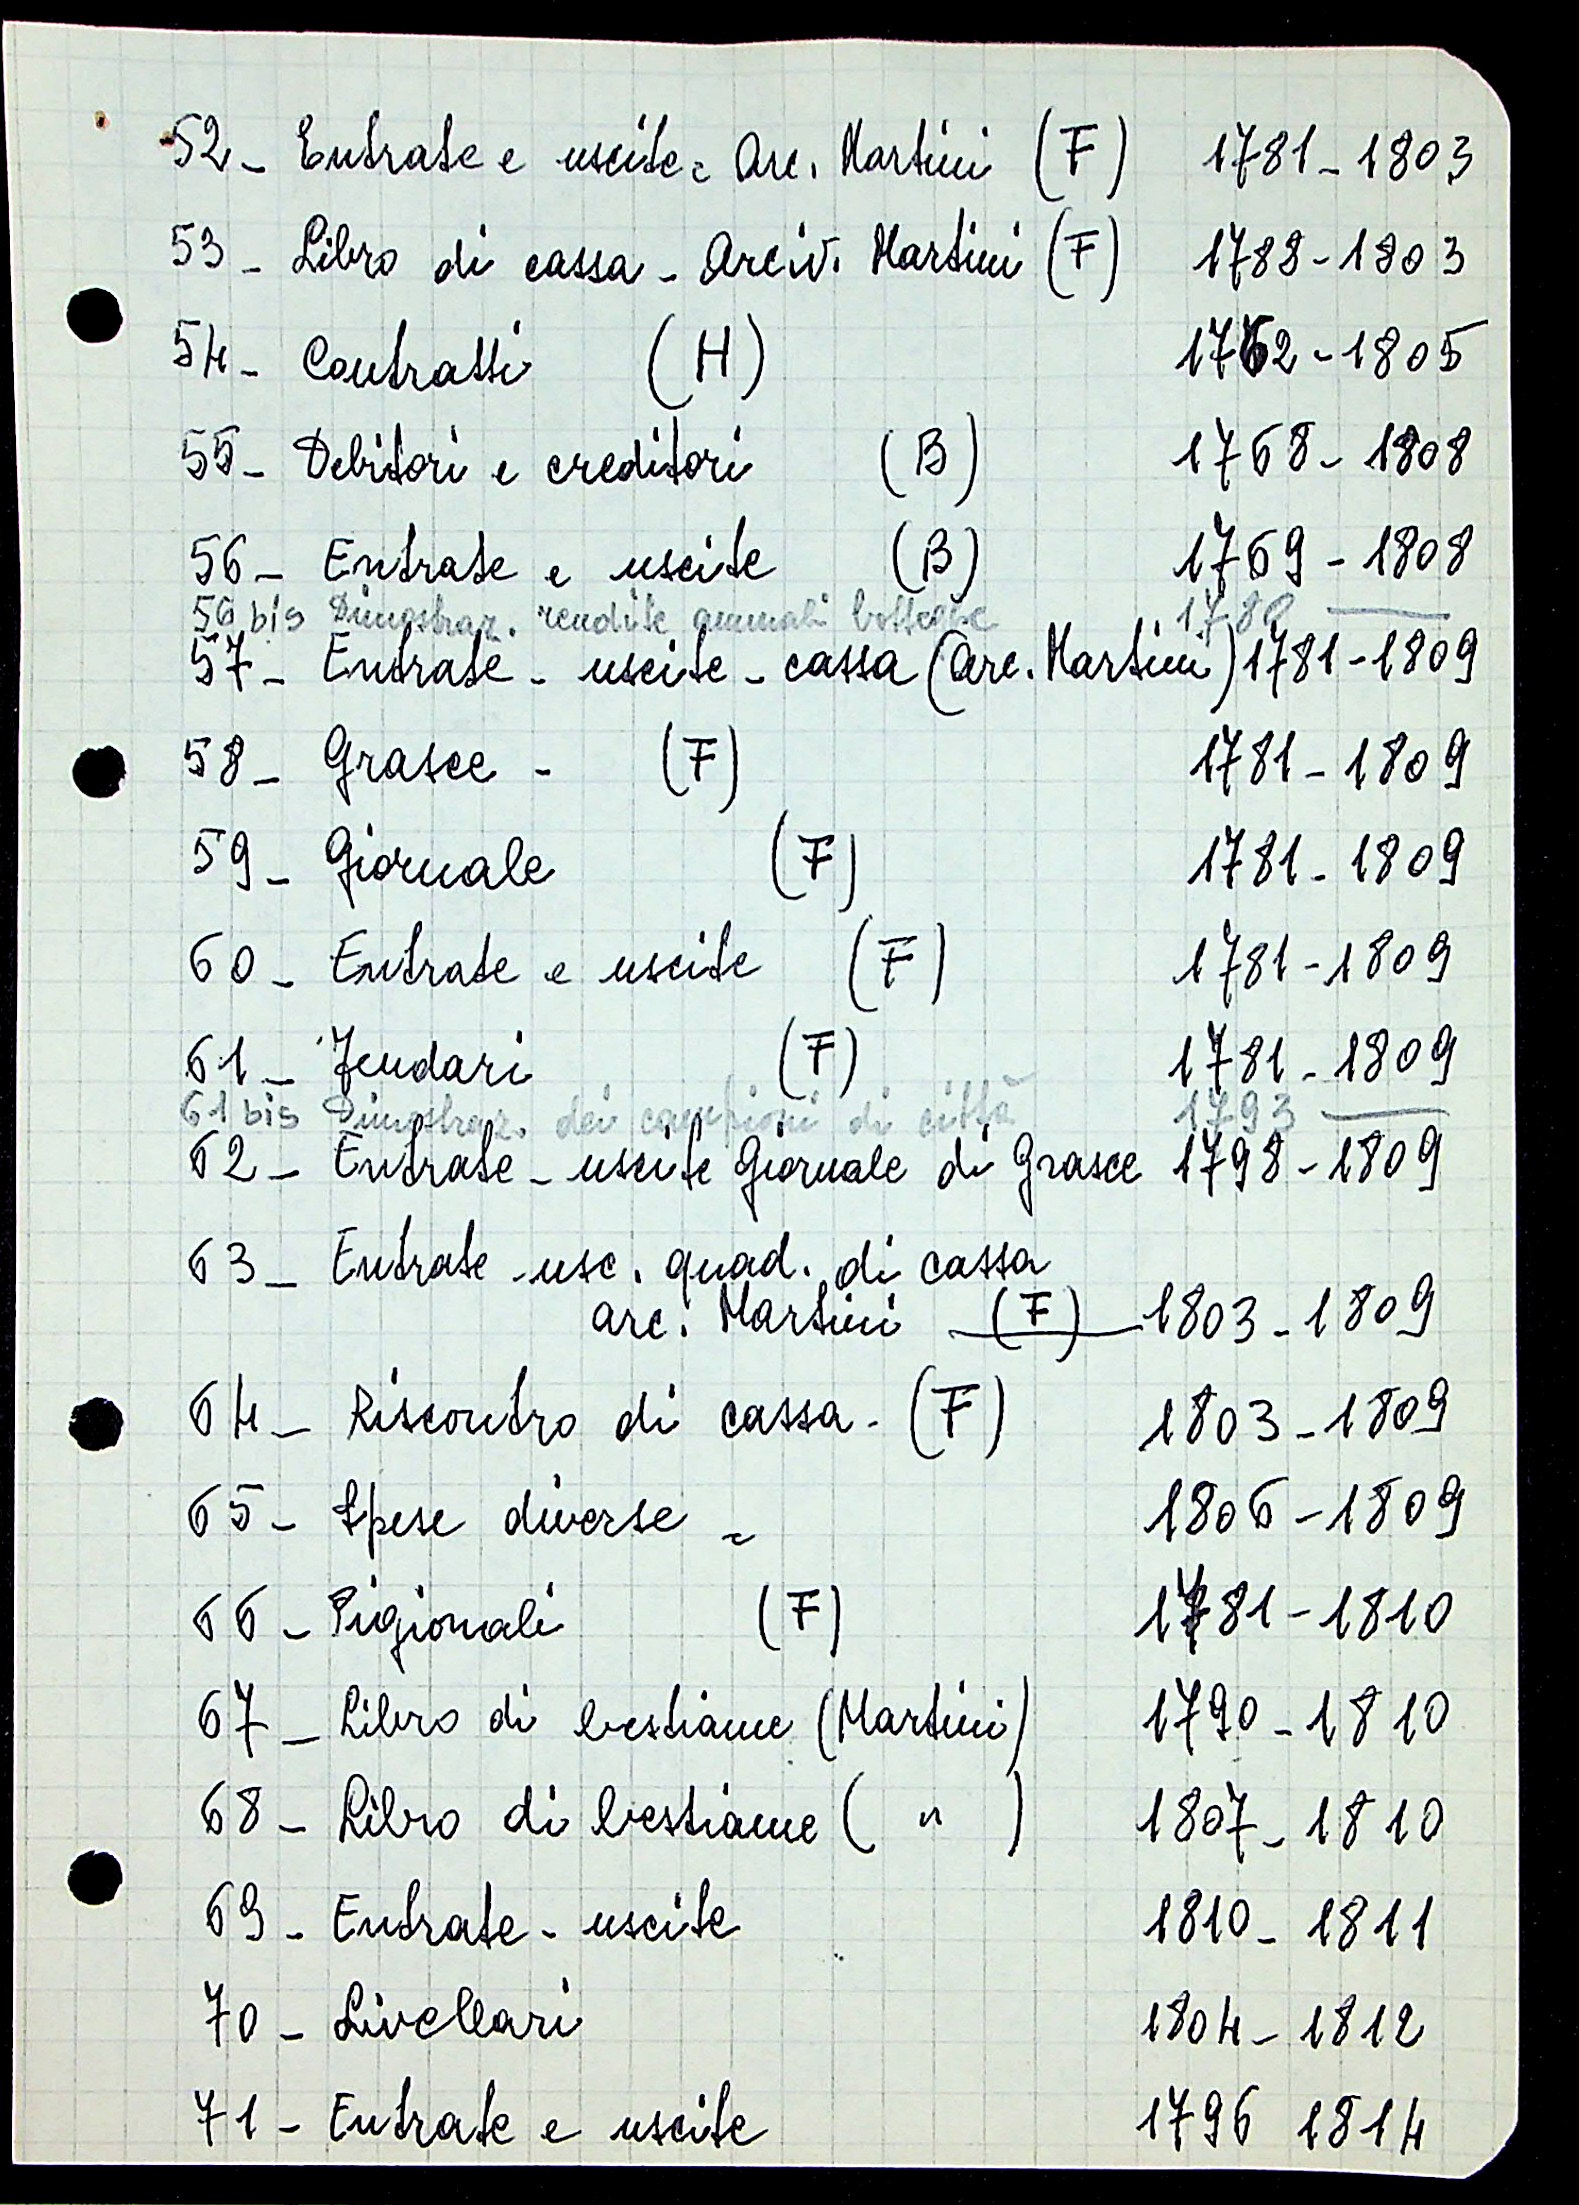 52 - Entrate e uscite = Arc. Martini (F) 1781 - 1803
53 - Libro di cassa - Arciv. Martini (F) 1788 - 1803
54 - Contratti (H) 1762 - 1805
55 - Debitori e creditori (B) 1768 - 1808
56 - Entrate e uscite (B) 1769 - 1808
56 bis Dimostraz. rendite annuali botteghe 1780 —
57 - Entrate - uscite - cassa (Arc. Martini) 1781 - 1809
58 - Grasce - (F) 1781 - 1809
59 - Giornale (F) 1781 - 1809
60 - Entrate e uscite (F) 1781 - 1809
61 - Feudari (F) 1781 - 1809
61 bis Dimostraz. dei campioni di città 1793 —
62 - Entrate - uscite Giornale di Grasce 1798 - 1809
63 - Entrate - usc. quad. di cassa
arc. Martini (F) 1803 - 1809
64 - Riscontro di cassa - (F) 1803 - 1809
65 - Spese diverse = 1806 - 1809
66 - Pigionali (F) 1781 - 1810
67 - Libro di bestiame (Martini) 1790 - 1810
68 - Libro di bestiame ( " ) 1807 - 1810
69 - Entrate - uscite 1810 - 1811
70 - Livellari 1804 - 1812
71 - Entrate e uscite 1796 1814